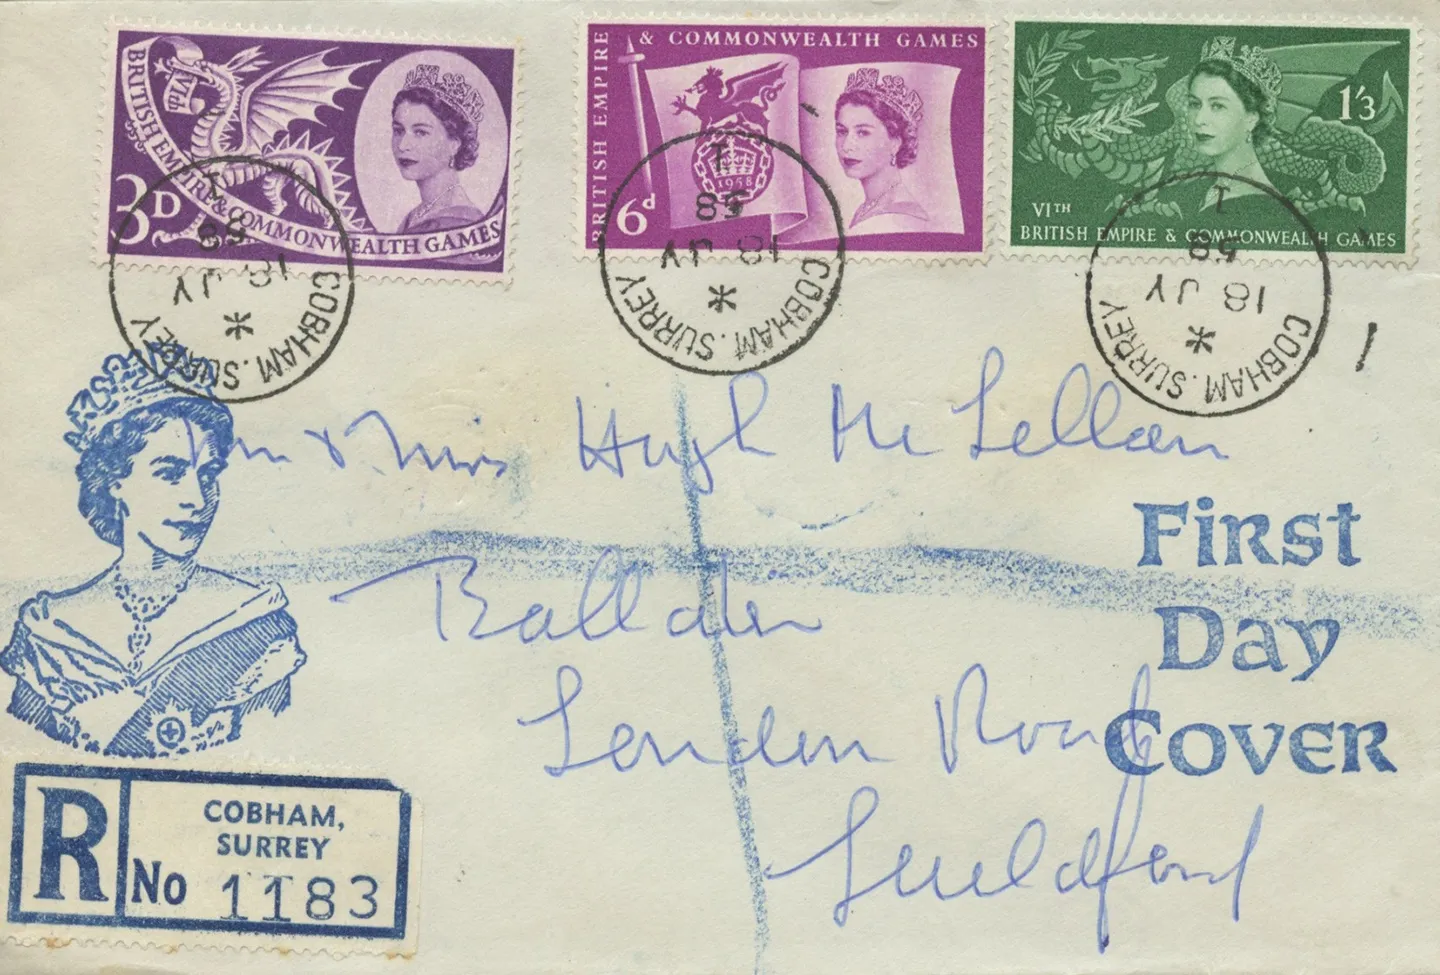 BRITISH EMPIRE & COMMONWEALTH GAMES
3D
BRITISH EMPIRE & COMMONWEALTH GAMES
1958
6d
1'3
VITH
BRITISH EMPIRE & COMMONWEALTH GAMES
COBHAM. SURREY
*
18 JY
58
1
COBHAM. SURREY
*
18 JY
58
1
COBHAM. SURREY
*
18 JY
58
1
Mr & Mrs Hugh McLellan
London Road
Guildford
First
Day
Cover
R
COBHAM,
SURREY
No 1183